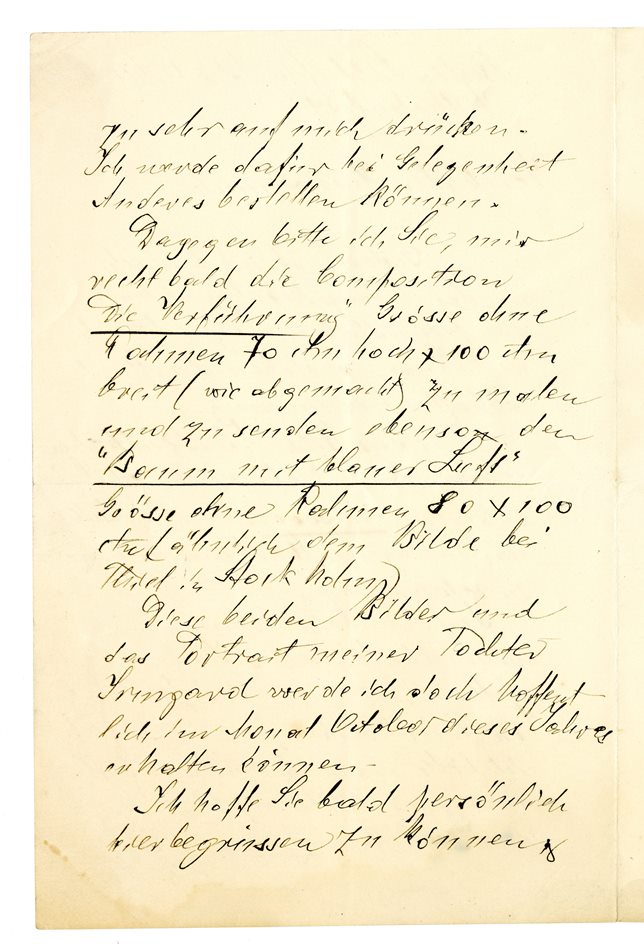 zu sehr auf mich drücken.
Ich werde dafür bei Gelegenheit
Anderes bestellen können.
Dagegen bitte ich Sie, mir
recht bald die Composition
Die Verführung" Grösse ohne
Rahmen 70 ctm hoch x 100 ctm
breit (wie abgemacht) zu malen
und zu senden ebenso den
"Baum mit blauer Luft"
Grösse ohne Rahmen 80 x 100
ctm (ähnlich dem Bilde bei
Thiel in Stockholm)
Diese beiden Bilder und
das Portrait meiner Tochter
Irmgard werde ich doch hoffent
lich im Monat October dieses Jahres
erhalten können -
Ich hoffe Sie bald persönlich
hier begrüssen zu können